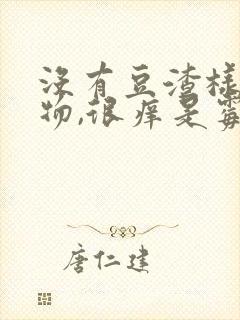 没有豆渣样
物,很痒是霉
唐仁建